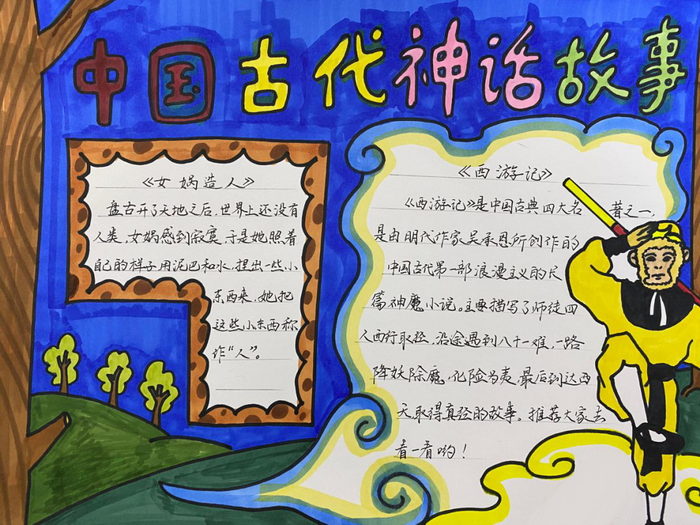 中国古代神话故事
《女娲造人》
盘古开了天地之后,世界上还没有
人类,女娲感到寂寞,于是她照着
自己的样子用泥巴和水,捏出一些小
东西来,她把
这些小东西称
作“人”。
《西游记》
《西游记》是中国古典四大名著之一,
是由明代作家吴承恩所创作的
中国古代第一部浪漫主义的长
篇神魔小说。主要描写了师徒四
人西行取经,沿途遇到八十一难,一路
降妖除魔,化险为夷,最后到达西
天取得真经的故事。推荐大家去
看一看哟!